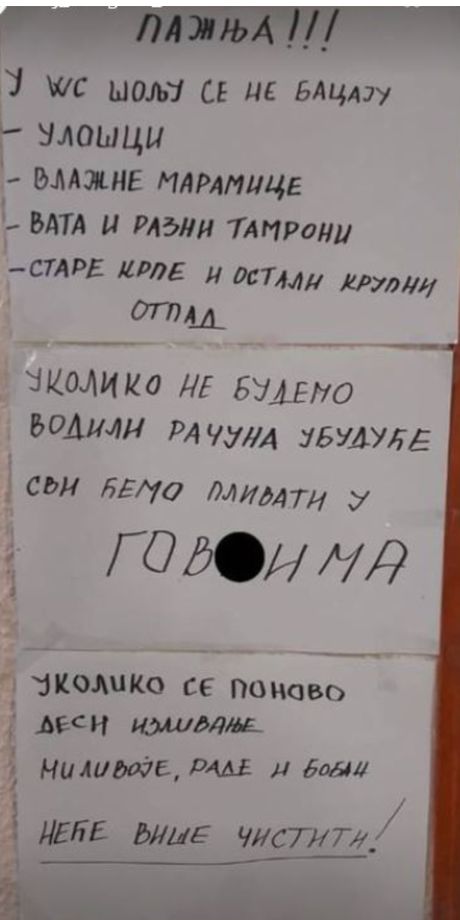 ПАЖЊА!!!
У WC ШОЉУ СЕ НЕ БАЦАЈУ
- УЛОШЦИ
- ВЛАЖНЕ МАРАМИЦЕ
- ВАТА И РАЗНИ ТАМРОНИ
- СТАРЕ КРПЕ И ОСТАЛИ КРУПНИ
ОТПАД
УКОЛИКО НЕ БУДЕМО
ВОДИЛИ РАЧУНА УБУДУЋЕ
СВИ ЋЕМО ПЛИВАТИ У
ГОВ ИМА
УКОЛИКО СЕ ПОНОВО
ДЕСИ ИЗЛИВАЊЕ
МИЛИВОЈЕ, РАДЕ И БОБАН
НЕЋЕ ВИШЕ ЧИСТИТИ!